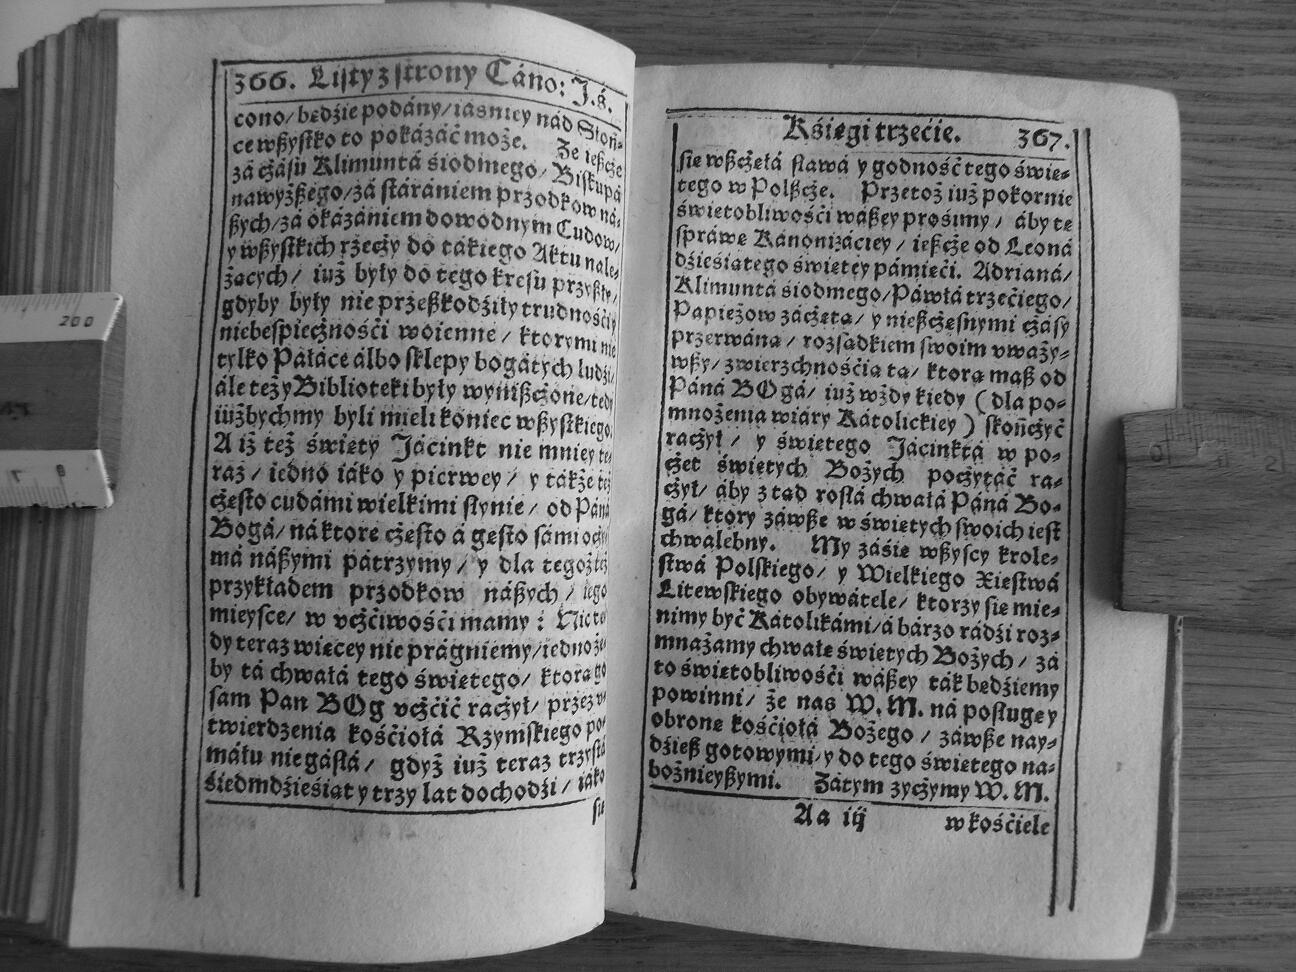 366. Listy z strony Cáno: J. ś.
cono/ będźie podány/ iásniey nád Słoń-
ce wßystko to pokázáć może. Ze ießcże
zá cżásu Klimuntá śiodmego/ Biskupá
nawyżßego/ zá stárániem przodkow ná-
ßych/ zá okázániem dowodnym Cudow/
y wßystkich rzecży do tákiego Aktu nale-
żących/ iuż były do tego kresu przyßły/
gdyby były nie przeßkodźiły trudnośći y
niebespiecżnośći woienne/ ktorymi nie
tylko Páłáce álbo sklepy bogátych ludźi/
ále też y Biblioteki były wynißcżone/ tedy
iużbychmy byli mieli koniec wßystkiego.
A iż też święty Jácinkt nie mniey te-
raz/ iedno iáko y pierwey/ y tákże też
cżęsto cudámi wielkimi słynie/ od Páná
Bogá/ ná ktore cżęsto á gęsto sámi ocży-
má náßymi pátrzymy/ y dla tegoż też
przykłádem przodkow náßych/ iego
mieysce/ w vcżćiwośći mamy: Nic te-
dy teraz więcey nie prágniemy/ iedno że-
by tá chwałá tego świętego/ ktorą go
sam Pan BOg vcżćić racżył/ przez v-
twierdzenia kośćiołá Rzymskiego po-
máłu nie gásłá/ gdyż iuż teraz trzystá
śiedmdźieśiąt y trzy lat dochodźi/ iáko
sie
Kśięgi trzećie. 367.
sie wßcżęłá sławá y godność tego świę-
tego w Polßcże. Przetoż iuż pokornie
świętobliwośći wáßey prośimy/ áby tę
spráwę Kánonizáciey/ ießcże od Leoná
dźieśiątego świętey pámięći. Adrianá/
Klimuntá śiodmego/ Páwłá trzećiego/
Papieżow zácżętą/ y nießcżęsnymi cżásy
przerwáną/ rozsądkiem swoim vważy-
wßy/ zwierzchnośćią tą/ ktorą maß od
Páná BOgá/ iuż wżdy kiedy (dla po-
mnożenia wiáry Kátolickiey) skońcżyć
racżył/ y świętego Jácinktá w po-
cżet świętych Bożych pocżytáć ra-
cżył/ áby z tąd rosłá chwałá Páná Bo-
gá/ ktory záwße w świętych swoich iest
chwalebny. My záśie wßyscy krole-
stwá Polskiego/ y Wielkiego Xięstwá
Litewskiego obywátele/ ktorzy sie mie-
nimy być Kátolikámi/ á bárzo rádźi roz-
mnażamy chwałę świętych Bożych/ zá
to świętobliwośći wáßey ták będźiemy
powinni/ że nas W. M. ná posługę y
obronę kośćiołá Bożego/ záwße nay-
dźieß gotowymi/ y do tego świętego na-
bożnieyßymi. Zátym zycżymy W. M.
Aa iij w kośćiele